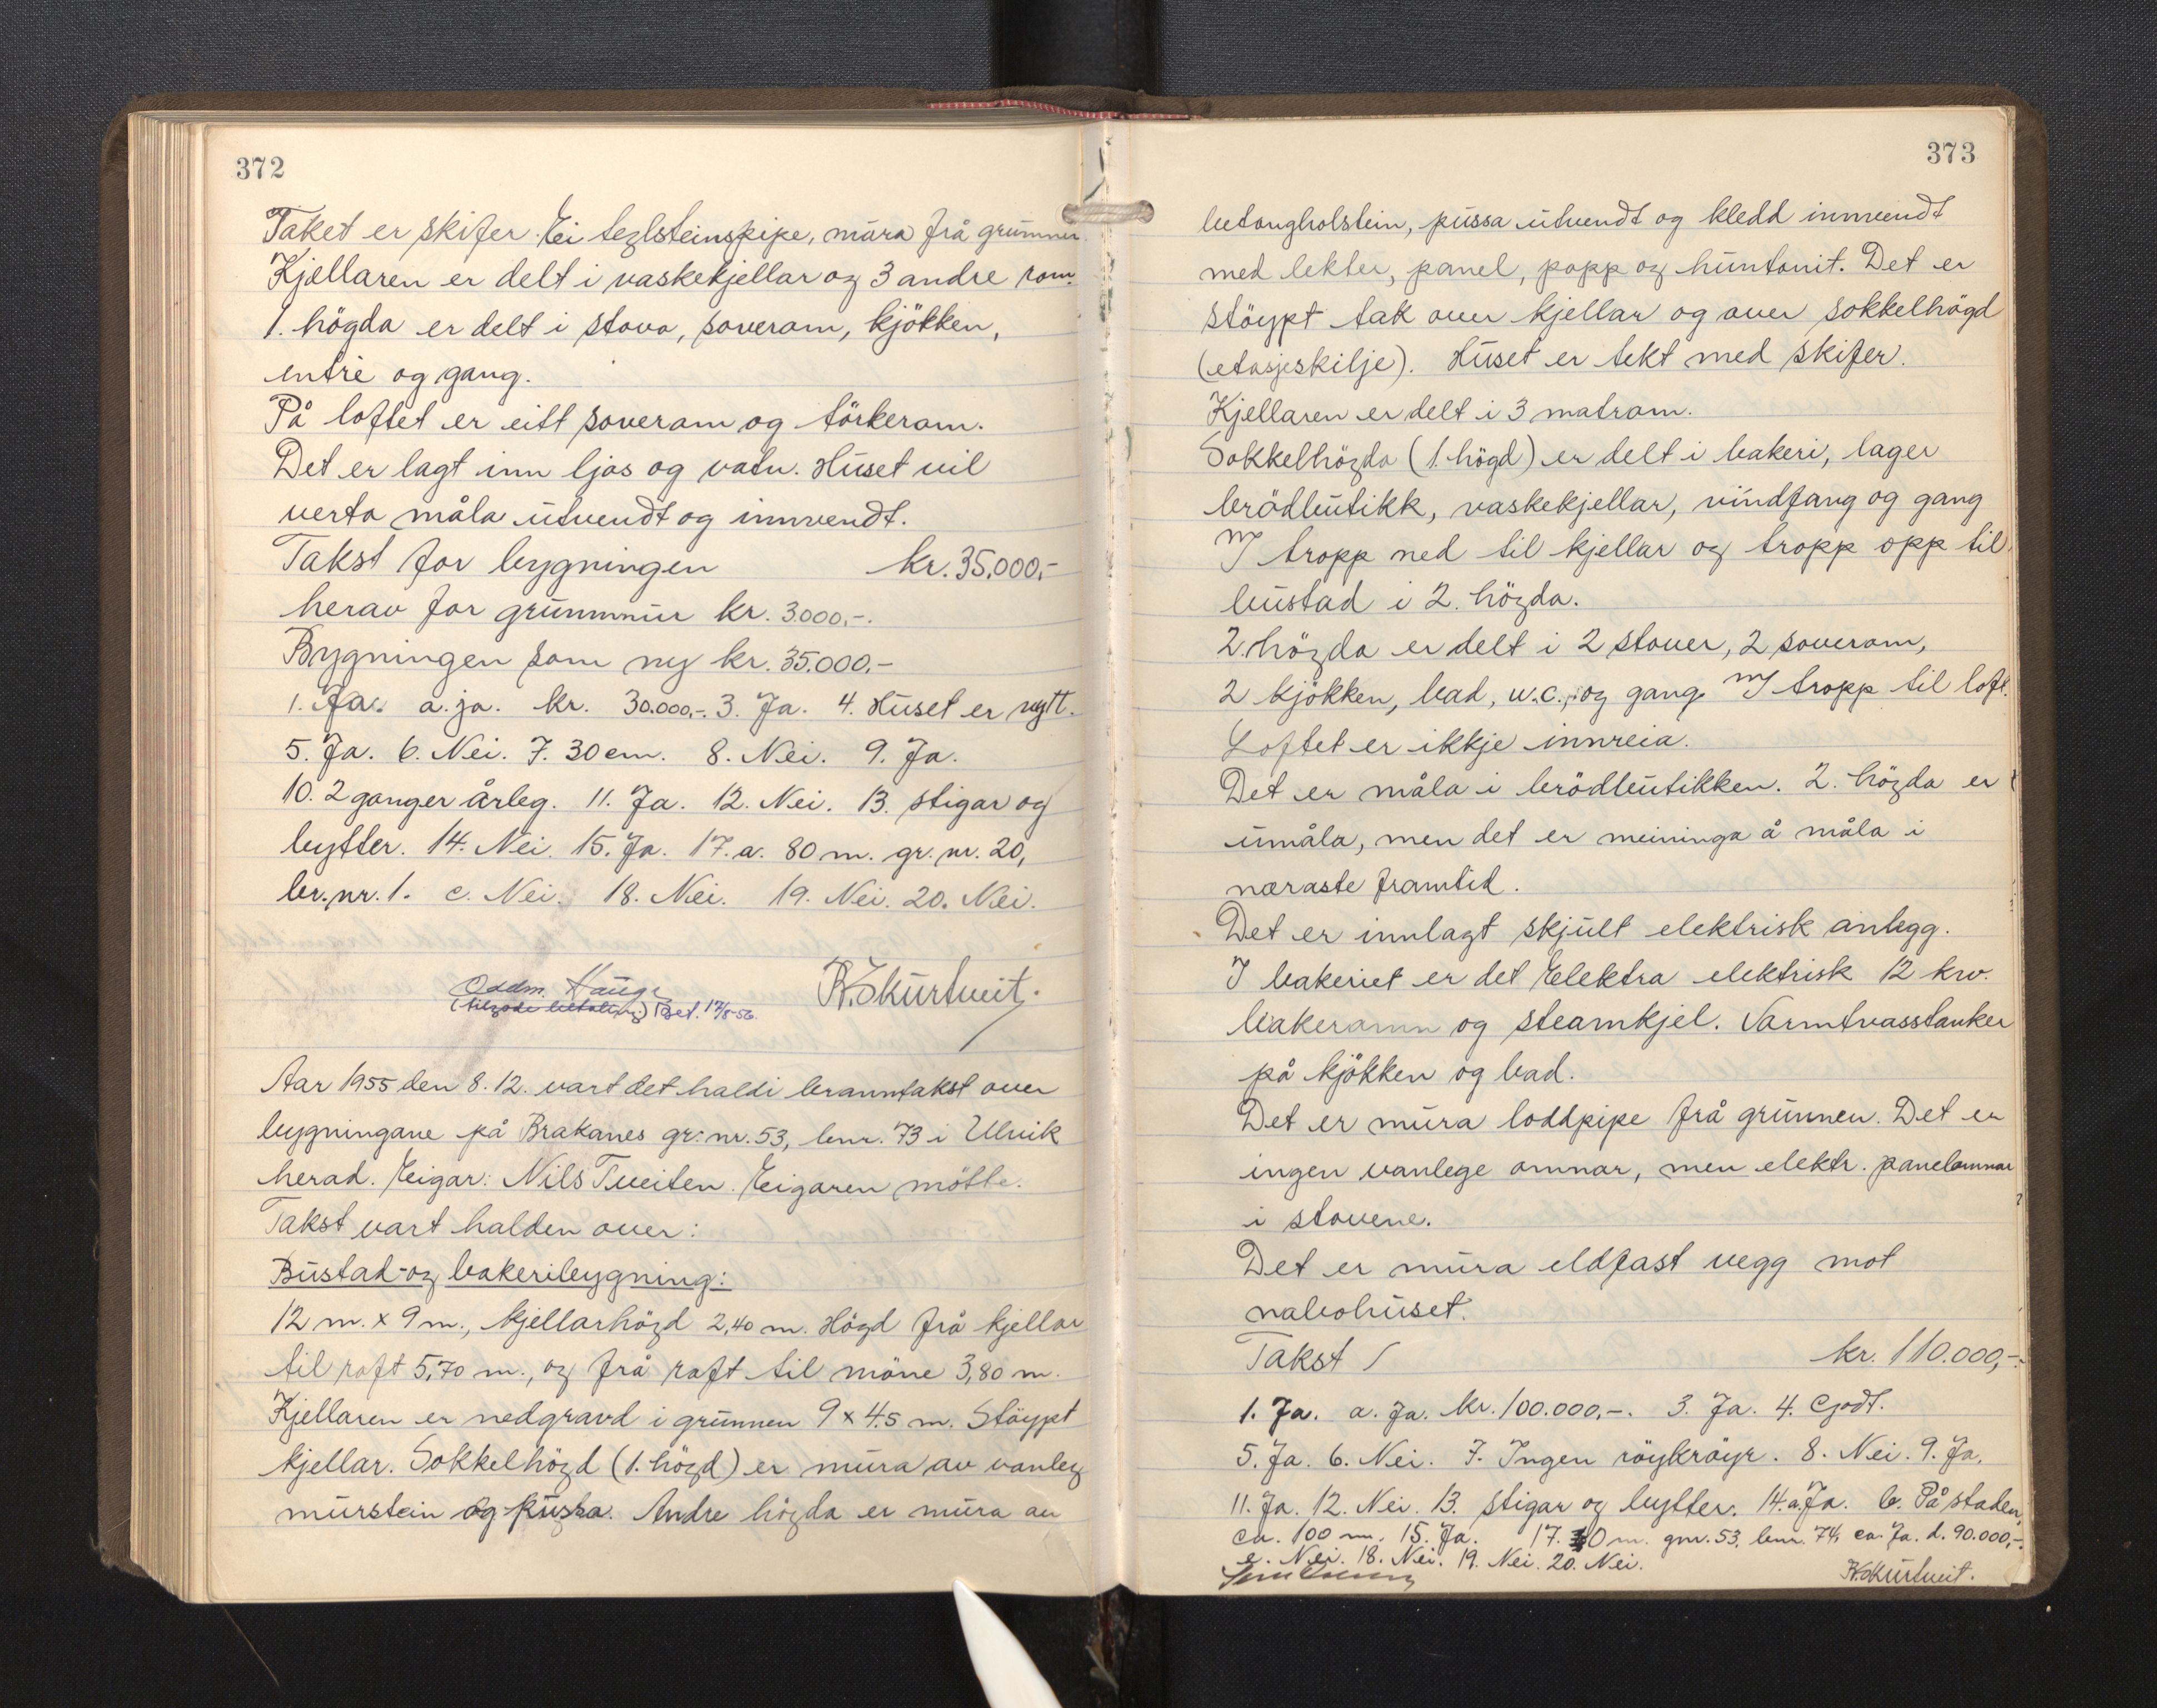 372
Taket er skifer. Ei teglsteinspipe, mura frå grunnen.
Kjellaren er delt i vaskekjellar og 3 andre rom.
1. högda er delt i stova, soverom, kjökken,
entrè og gang.
På loftet er eitt soverom og törkerom.
Det er lagt inn ljos og vatn. Huset vil
verta måla utvendt og innvendt.
Takst for bygningen kr. 35.000,-
herav for grunnmur kr. 3.000,-.
Bygningen som ny kr. 35.000,-
1. Ja. a. ja. kr. 30.000,-. 3. Ja. 4. Huset er nytt.
5. Ja. 6. Nei. 7. 30 cm. 8. Nei. 9. Ja.
10. 2 ganger årleg. 11. Ja. 12. Nei. 13. stigar og
bytter. 14. Nei. 15. Ja. 17. a. 80 m. gr. nr. 20,
br. nr. 1. c. Nei. 18. Nei. 19. Nei. 20. Nei.
Oddm. Hauge
(tilgode betaling) Bet. 17/8-56.
H. Skurtveit.
Aar 1955 den 8.12. vart det haldi branntakst over
bygningane på Brakanes gr. nr. 53, bnr. 73 i Ulvik
herad. Eigar: Nils Tveiten. Eigaren mötte.
Takst vart halden over:
Bustad- og bakeribygning:
12 m. x 9 m., kjellarhögd 2,40 m. Högd frå kjellar
til raft 5,70 m., og frå raft til möne 3,80 m.
Kjellaren er nedgravd i grunnen 9 x 4.5 m. Stöypt
kjellar. Sokkelhögd (1. högd) er mura av vanleg
murstein og pussa. Andre högda er mura av
373
betongholstein, pussa utvendt og kledd innvendt
med lekter, panel, papp og huntonit. Det er
stöypt tak over kjellar og over sokkelhögd
(etasjeskilje). Huset er tekt med skifer.
Kjellaren er delt i 3 matrom.
Sokkelhögda (1. högd) er delt i bakeri, lager
brödbutikk, vaskekjellar, vindfang og gang
m/ tropp ned til kjellar og tropp opp til
bustad i 2. högda.
2. högda er delt i 2 stover, 2 soverom,
2 kjökken, bad, w.c., og gang m/ tropp til loft.
Loftet er ikkje innreia.
Det er måla i brödbutikken. 2. högda er
umåla, men det er meininga å måla i
næraste framtid.
Det er innlagt skjult elektrisk anlegg.
I bakeriet er det Elektra elektrisk 12 kw.
bakeramn og steamkjel. Varmtvasstanker
på kjökken og bad.
Det er mura loddpipe frå grunnen. Det er
ingen vanlege omnar, men elektr. panelomnar
i stovene.
Det er mura eldfast vegg mot
nabohuset.
Takst kr. 110.000,-.
1. Ja. a. Ja. kr. 100.000,-. 3. Ja. 4. Godt.
5. Ja. 6. Nei. 7. Ingen röykröyr. 8. Nei. 9. Ja.
11. Ja. 12. Nei. 13. stigar og bytter. 14. a. Ja. b. På staden
ca. 100 m. 15. Ja. 17. 0 m. gnr. 53, bnr. 74, ca. Ja. d. 90.000,-.
e. Nei. 18. Nei. 19. Nei. 20. Nei.
H. Skurtveit.